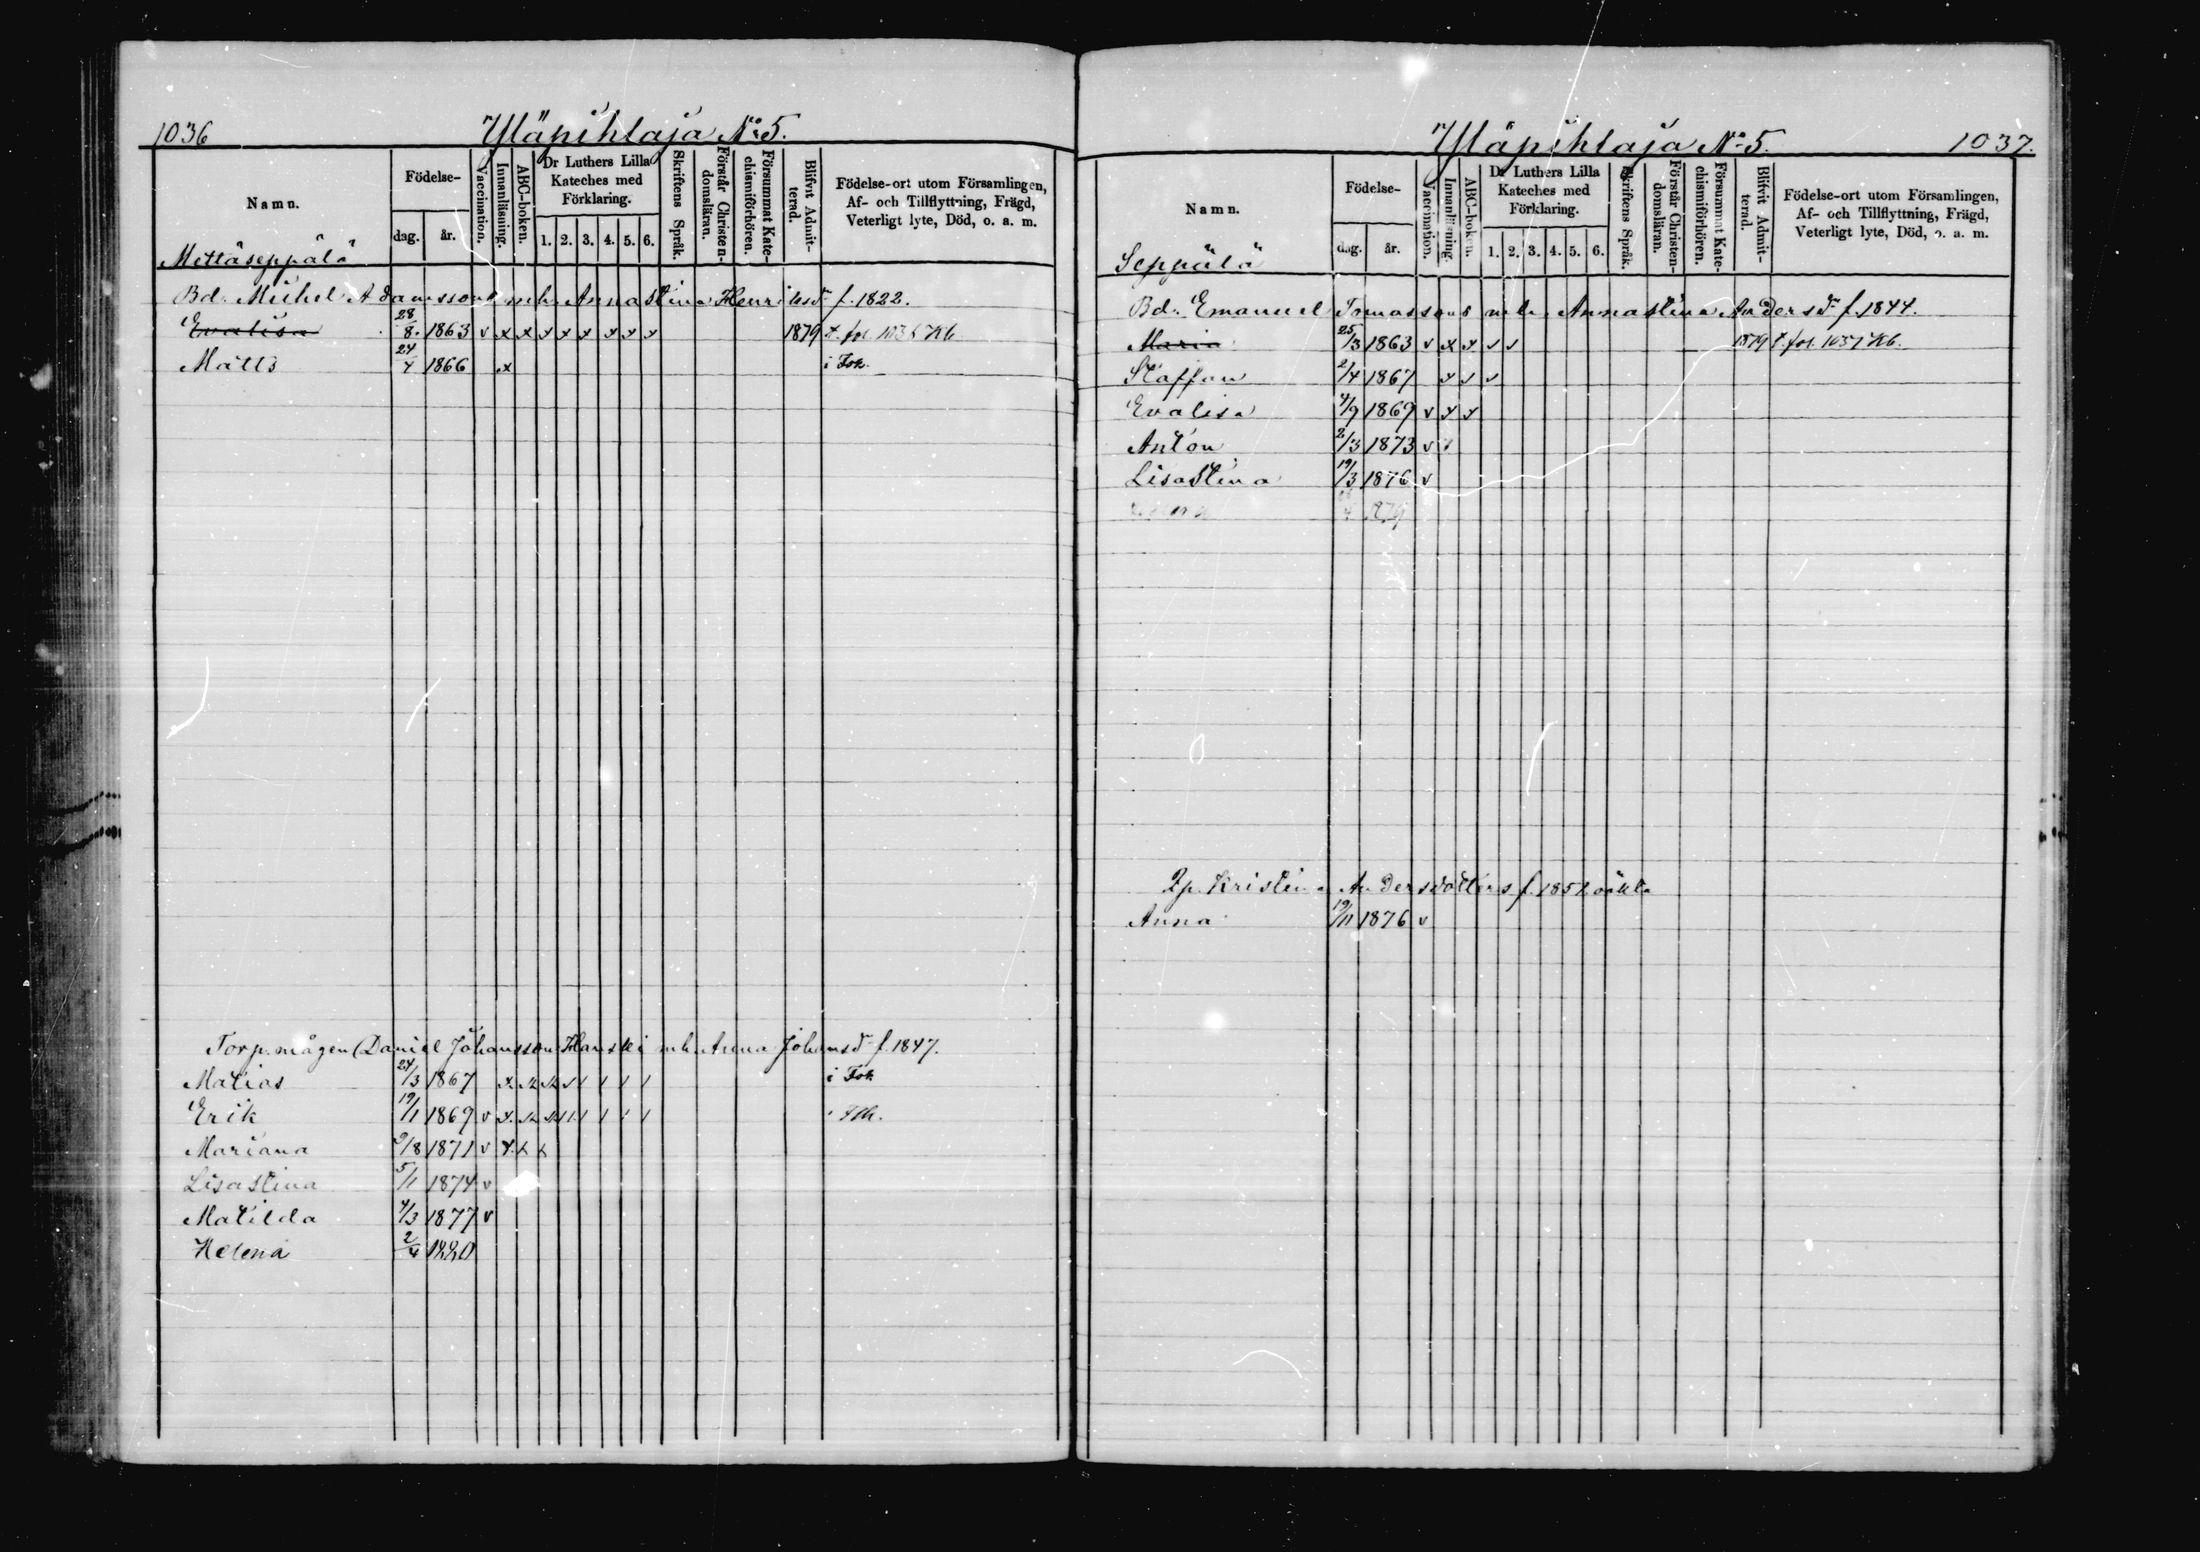 1036 Yläpihlaja No 5.
Namn. Födelse- dag. år. Vaccination. Innanläsning. ABC-boken. Dr Luthers Lilla Kateches med Förklaring. 1. 2. 3. 4. 5. 6. Skriftens Språk. Förstår Christendomsläran. Försummat Katechismiförhören. Blifvit Admitterad. Födelse-ort utom Församlingen, Af- och Tillflyttning, Frägd, Veterligt lyte, Död, o. a. m.
Mettäseppälä
Bd. Mickel Adamssons m h. Annastina Henriksdr f. 1822.
Evalisa 28/8 1863 v x x x x x x x x 1879 t. fol. 1036 Kb
Matts 24/4 1866 x i Fok.
Torp. mågen Daniel Johansson Hanski m h. Anna Johansdr f. 1847.
Matias 24/3 1867 i Fok
Erik 19/1 1869 v
Mariana 9/8 1871 v
Lisastina 5/1 1874 v
Matilda 4/3 1877 v
Helena 2/4 1880
Yläpihlaja No 5. 1037.
Namn. Födelse- dag. år. Vaccination. Innanläsning. ABC-boken. Dr Luthers Lilla Kateches med Förklaring. 1. 2. 3. 4. 5. 6. Skriftens Språk. Förstår Christendomsläran. Försummat Katechismiförhören. Blifvit Admitterad. Födelse-ort utom Församlingen, Af- och Tillflyttning, Frägd, Veterligt lyte, Död, o. a. m.
Seppälä
Bd. Emanuel Tomassons m h. Annastina Andersdr f. 1844.
Maria 25/3 1863 v x x 1879 t. fol. 1037 Kb.
Staffan 2/4 1867
Evalisa 4/9 1869 v x x
Anton 2/3 1873 v
Lisastina 19/3 1876 v
1879
Kristina Andersdotters f. 1851 oäkta
Anna 19/11 1876 v